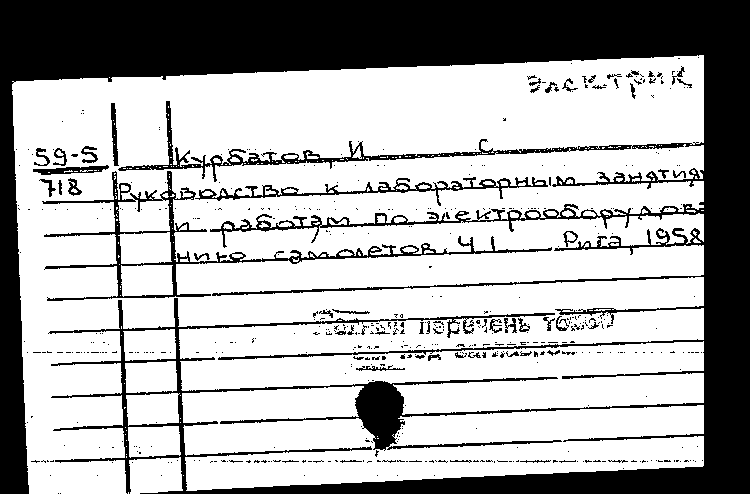 Электрик
59-5
Курбатов, И С
718
Руководство к лабораторным занятиям
и работам по электрооборудова
нию самолетов. Ч 1 Рига, 1958
Полный перечень томов
см. под